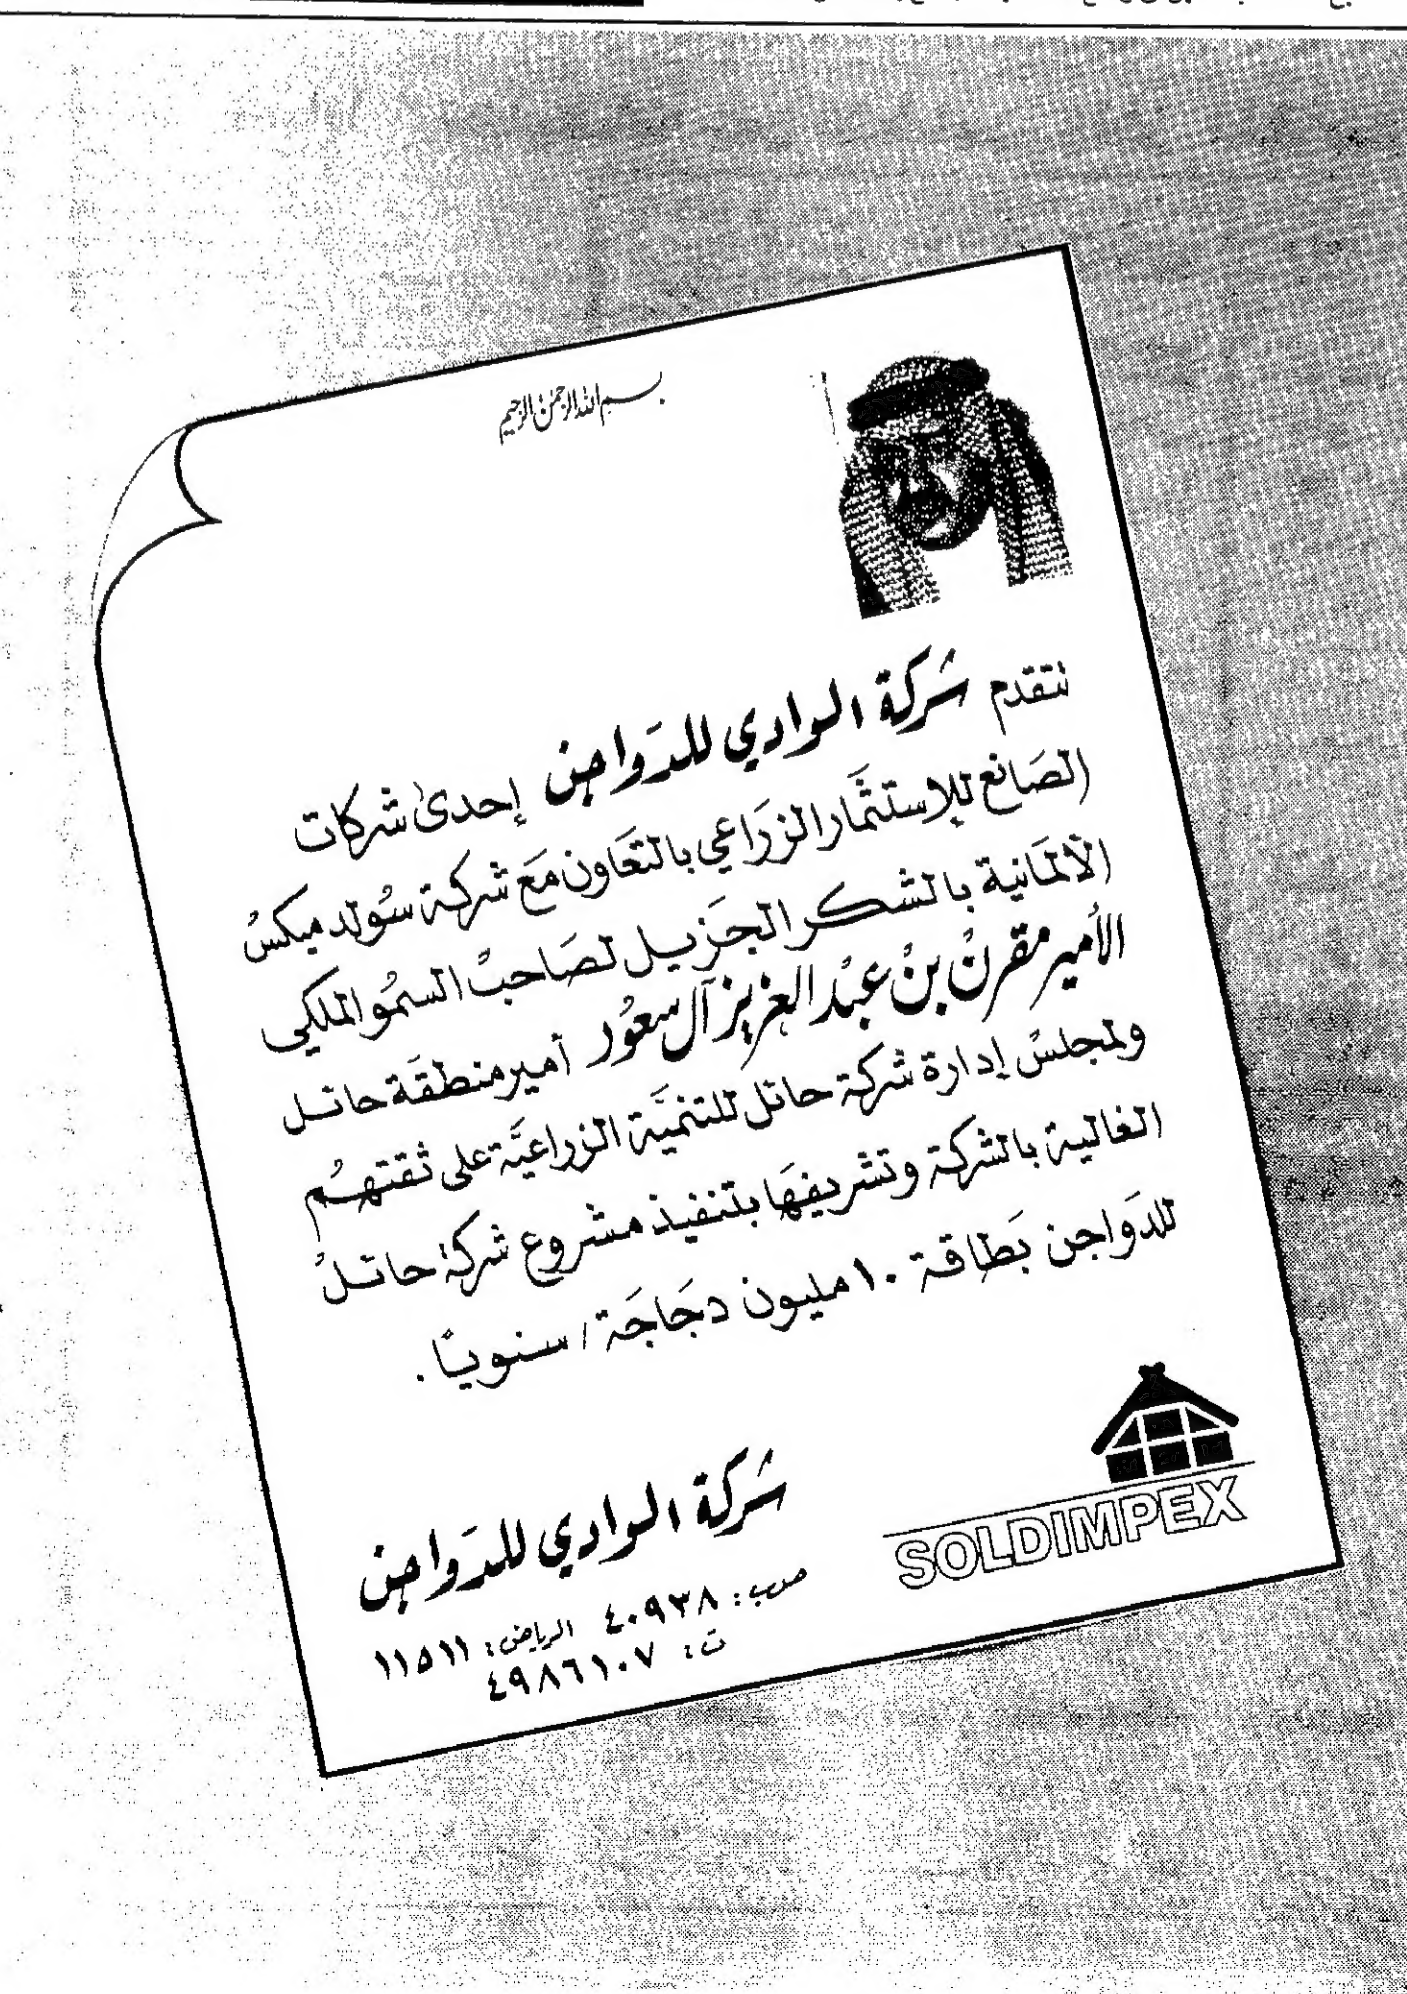 بسم الله الرحمن الرحيم
تتقدم شركة الوادي للدَواجن إحدى شركات
الصَانع للإستثمار الزرَاعي بالتعَاون مَع شركة سُولد مبكسْ
الألمَانية بالشكر الجَزيل لصَاحبْ السمُو الملكي
الأمير مقرنْ بنْ عبْد العزيز آل سعُود أمير منطقَة حائل
ولمجلسْ إدارة شركة حائل للتنميَّة الزراعيَّة على ثقتهمُ
الغالية بالشركة وتشريفهَا بتنفيذ مشروع شركة حائلْ
للدَواجن بَطاقة ١٠ مليون دجَاجَة / سنوياً .
شركة الوادي للدَواجن
ص.ب : ٤٠٩٣٨ الرياض : ١١٥١١
ت : ٤٩٨٦١٠٧
SOLDIMPEX